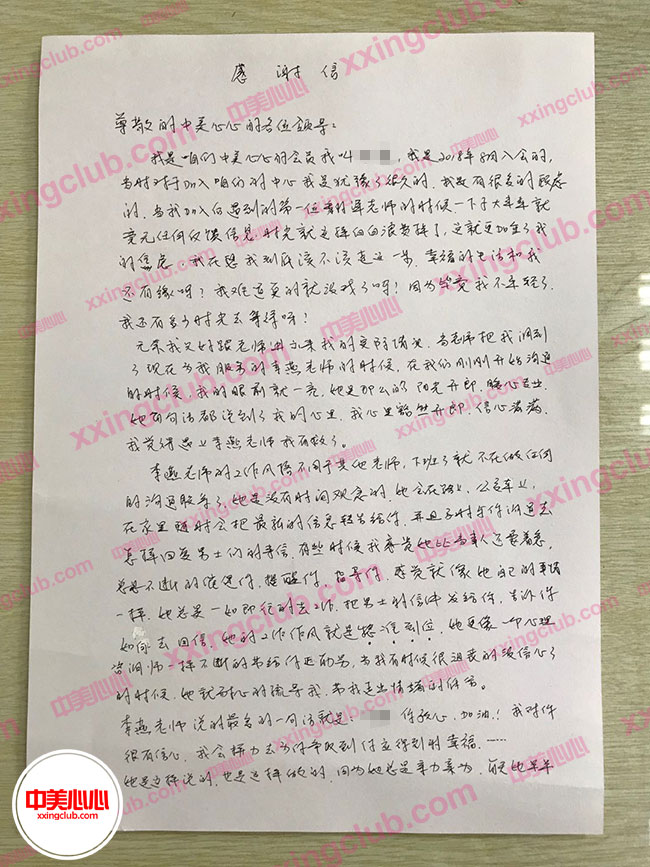 感谢信
尊敬的中美心心的各位领导:
我是咱们中美心心的会员我叫 ,我是2018年8月入会的,
当时对于加入咱们的中心我是犹豫了很久的,我是有很多的顾虑
的,当我加入后遇到的第一位 老师的时候,一下子大半年就
是无任何反馈信息,时光就这样白白浪费掉了,这就更加重了我
的焦虑,我在想我到底该不该走这一步,幸福的生活和我
还有缘吗?我难道真的就没戏了吗?因为毕竟我不年轻了,
我还有多少时光去等待呀?
元 我又好跟老师 我的实际情况,当老师把我调到
了现在为我服务的李燕老师的时候,在我们刚刚开始沟通
的时候,我的眼前就一亮,她是那么的阳光开朗,暖心 ,
她句句话都说到了我的心里,我心里豁然开朗,信心满满,
我觉得遇上李燕老师我有救了。
李燕老师的工作风格不同于其他老师,下班了就不在做任何
的沟通服务了,她是没有时间观念的,她会在路上,公交车上,
在家里随时会把最新的信息报告给你,并且及时与你沟通去
怎样回复男士们的来信,有些时候我感觉她比当事人还要着急,
总是不断的催促你,提醒你,指导你,感觉就像她自己的事情
一样,她总是一如既往的去工作,把男士的信件发给你,告诉你
如何去回信,她的工作作风就是稳准到位,她更像一个心理
咨询师一样不断的带给你正能量,当我有时候很沮丧的没信心了
的时候,她就耐心的疏导我,带我走出情绪的低谷。
李燕老师说的最多的一句话就是: 你放心,加油!我对你
很有信心,我会努力去为你争取到你应得到的幸福……
她是这样说的,也是这样做的,因为她总是亲力亲为,
中美心心
xxingclub.com